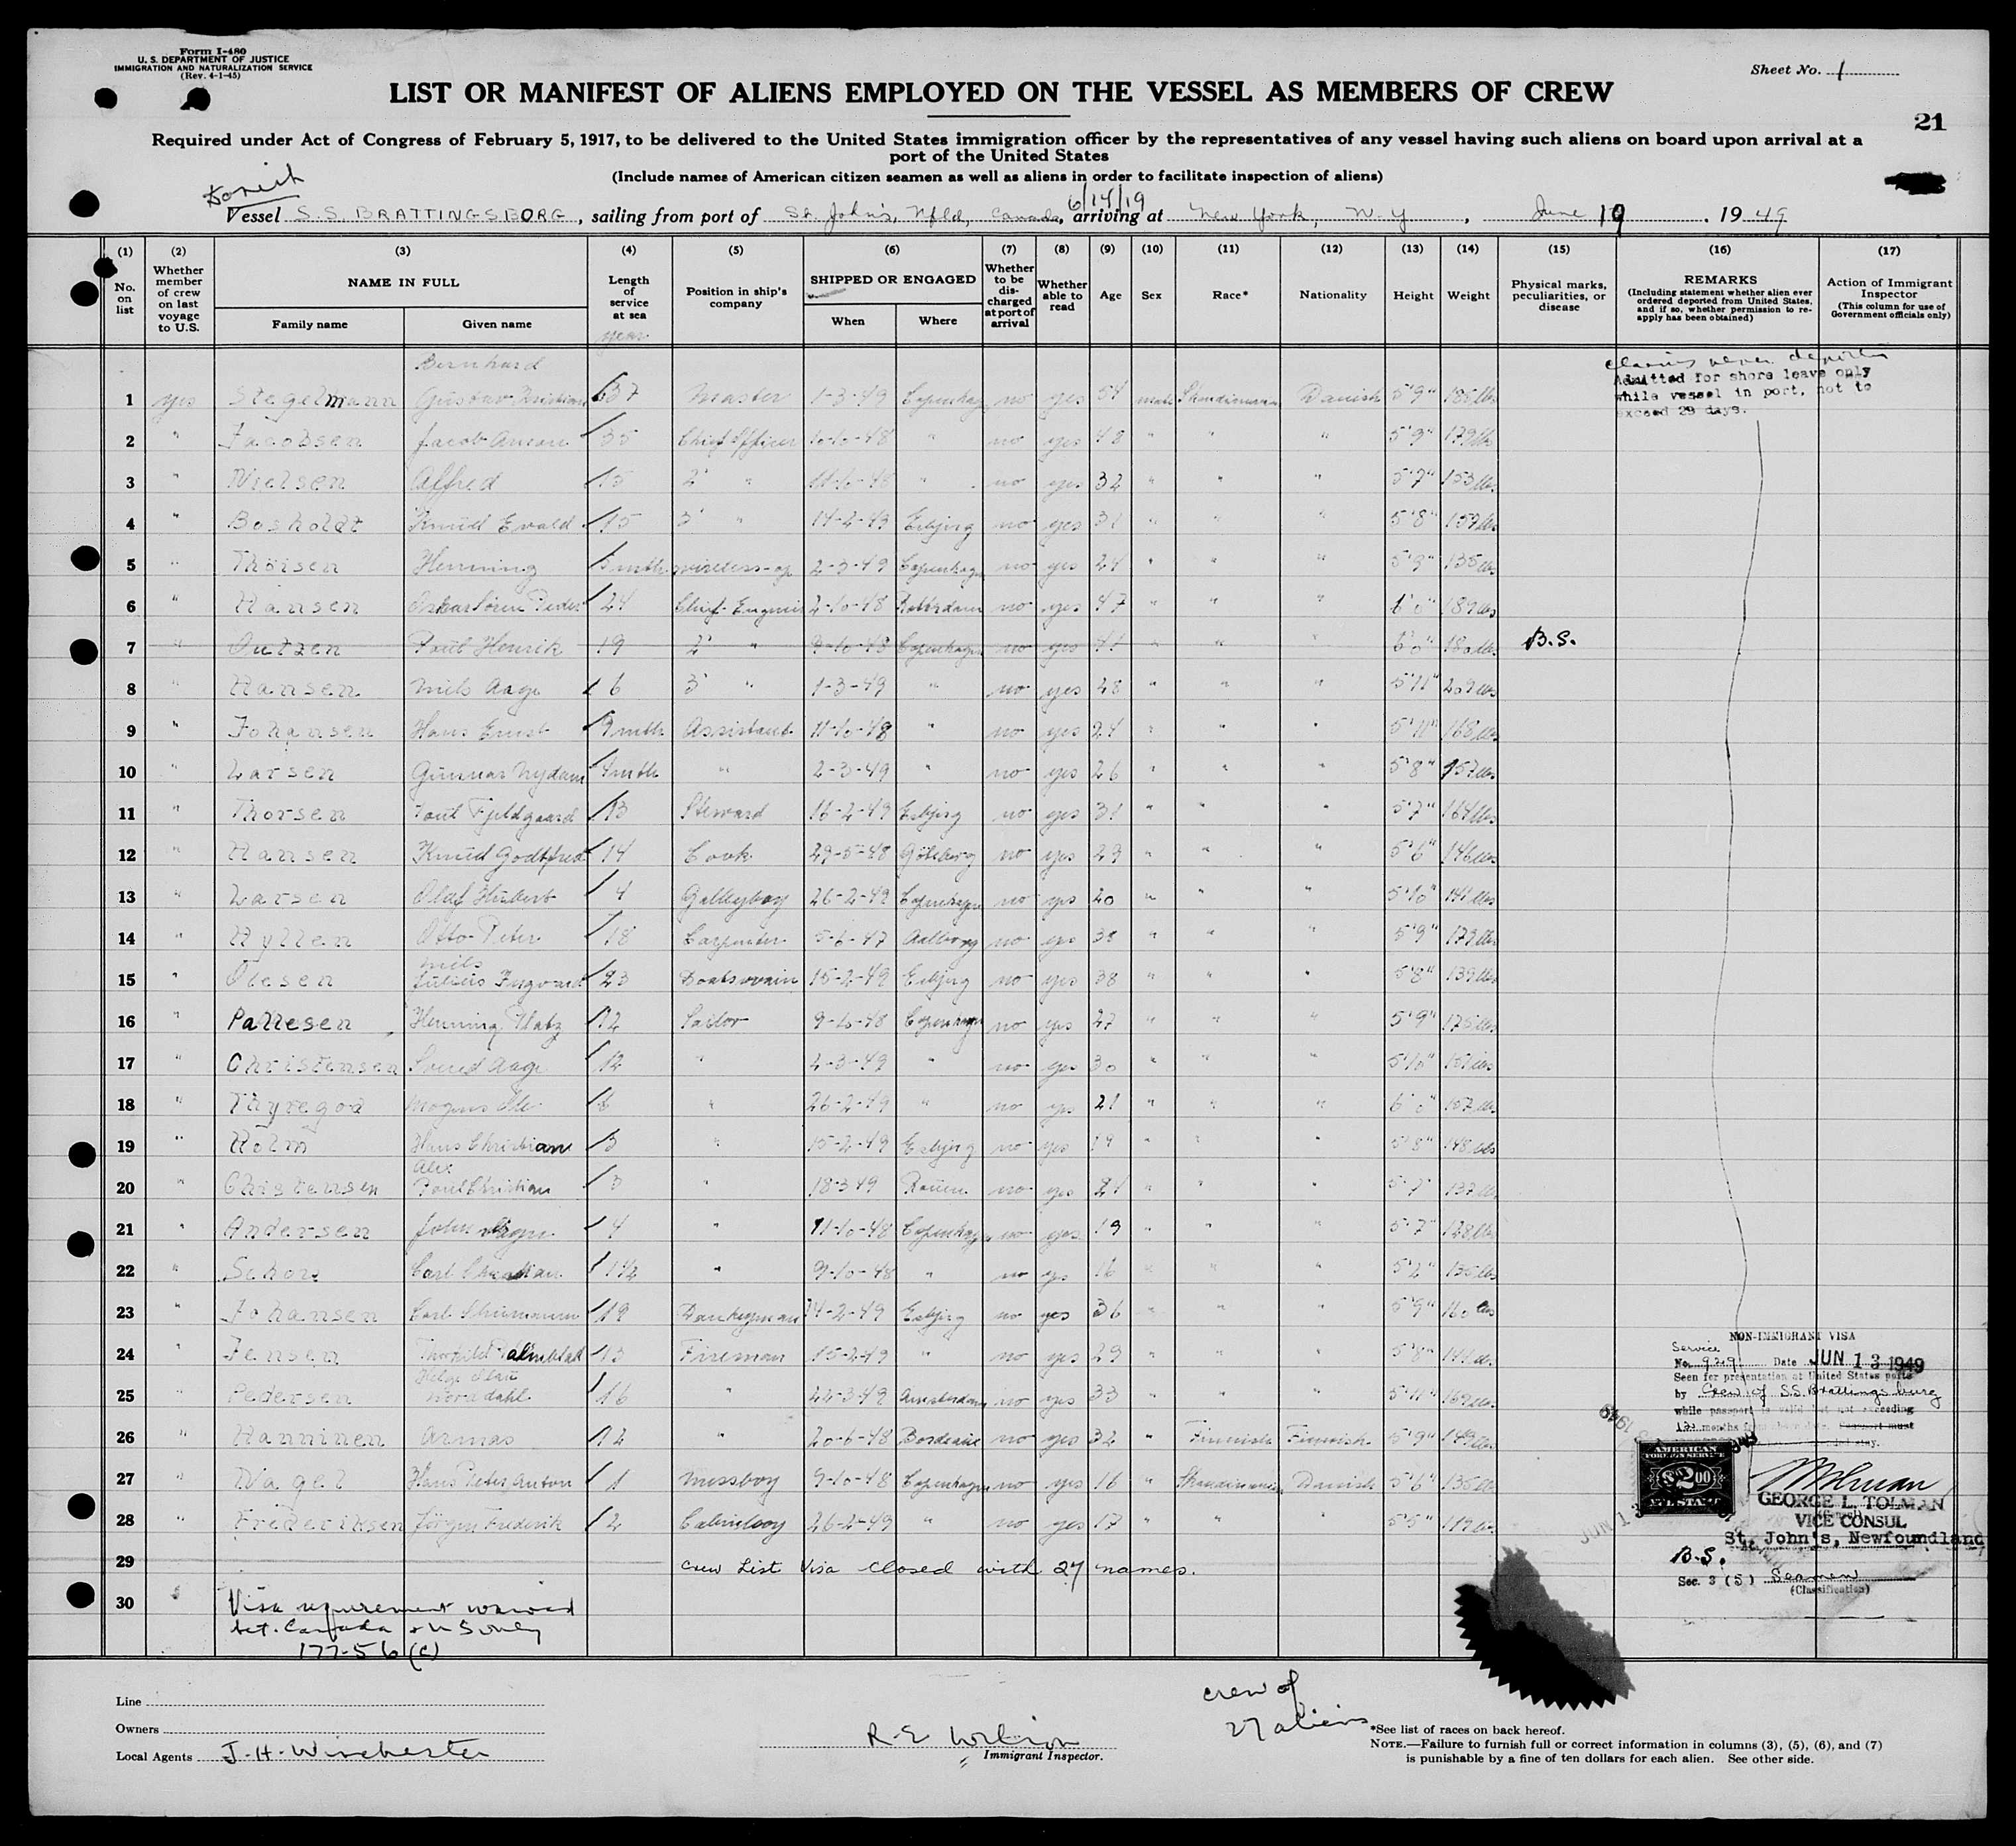 Form I-480
U. S. DEPARTMENT OF JUSTICE
IMMIGRATION AND NATURALIZATION SERVICE
(Rev. 4-1-45)
Sheet No. 1
LIST OR MANIFEST OF ALIENS EMPLOYED ON THE VESSEL AS MEMBERS OF CREW
21
Required under Act of Congress of February 5, 1917, to be delivered to the United States immigration officer by the representatives of any vessel having such aliens on board upon arrival at a
port of the United States
(Include names of American citizen seamen as well as aliens in order to facilitate inspection of aliens)
Danish
6/14/19
Vessel S.S. BRATTINGSBORG, sailing from port of St. John's, Nfld, Canada, arriving at New York, N.Y, June 19, 1949
(1) (2) (3) (4) (5) (6) (7) (8) (9) (10) (11) (12) (13) (14) (15) (16) (17)
No. on list Whether member of crew on last voyage to U.S. NAME IN FULL Family name Given name Length of service at sea year Position in ship's company SHIPPED OR ENGAGED When Where Whether to be discharged at port of arrival Whether able to read Age Sex Race* Nationality Height Weight Physical marks, peculiarities, or disease REMARKS (Including statement whether alien ever ordered deported from United States, and if so, whether permission to reapply has been obtained) Action of Immigrant Inspector (This column for use of Government officials only)
Bernhard
Admitted for shore leave only
while vessel in port, not to
exceed 29 days.
1 yes Stegelmann Gustav Kristian 37 Master 1-3-49 Copenhagen no yes 54 male Skandinavian Danish 5'9" 185 lbs
2 " Jacobsen Jacob 35 Chief Officer 10-10-48 " no yes 48 " " " 5'9" 179 lbs
3 " Nielsen Alfred 15 2' " 11-10-48 " no yes 32 " " " 5'7" 153 lbs
4 " Bosholdt Knud Evald 15 3' " 14-2-49 Esbjerg no yes 31 " " " 5'8" 159 lbs
5 " Thorsen Henning 5 mth wireless-op 2-3-49 Copenhagen no yes 24 " " " 5'9" 135 lbs
6 " Hansen Oskar Sören Peder 24 Chief Engineer 2-10-48 Rotterdam no yes 47 " " " 6'0" 189 lbs
7 " Outzen Poul Henrik 19 2' " 9-10-48 Copenhagen no yes 41 " " " 6'0" 180 lbs B.S.
8 " Hansen Niels Aage 6 3' " 1-3-49 " no yes 28 " " " 5'11" 209 lbs
9 " Johansen Hans Ernst 9 mth Assistant 11-10-48 " no yes 24 " " " 5'11" 168 lbs
10 " Larsen Gunnar Nydam 4 mth " 2-3-49 " no yes 26 " " " 5'8" 157 lbs
11 " Thorsen Poul Fjeldgaard 13 Steward 16-2-49 Esbjerg no yes 31 " " " 5'7" 164 lbs
12 " Hansen Knud Godtfred 14 Cook 29-5-48 Göteborg no yes 29 " " " 5'6" 146 lbs
13 " Larsen Olaf Hubert 4 Galleyboy 26-2-49 Copenhagen no yes 20 " " " 5'10" 141 lbs
14 " Hyllen Otto Peter 18 Carpenter 5-6-47 Aalborg no yes 38 " " " 5'9" 173 lbs
Niels
15 " Olesen Julius 23 Boatswain 15-2-49 Esbjerg no yes 38 " " " 5'8" 139 lbs
16 " Pallesen Henning Platz 12 Sailor 9-10-48 Copenhagen no yes 27 " " " 5'9" 175 lbs
17 " Christensen Svend Aage 12 " 2-3-49 " no yes 30 " " " 5'10" 151 lbs
18 " Thyregod Mogens Ole 6 " 26-2-49 " no yes 21 " " " 6'0" 157 lbs
19 " Holm Hans Christian 3 " 15-2-49 Esbjerg no yes 19 " " " 5'8" 148 lbs
Alex
20 " Christensen Poul Christian 3 " 18-3-49 Rouen no yes 21 " " " 5'7" 137 lbs
21 " Andersen John 4 " 11-10-48 Copenhagen no yes 19 " " " 5'7" 128 lbs
22 " Schou Carl Christian 1 1/2 " 9-10-48 " no yes 16 " " " 5'2" 135 lbs
23 " Johansen Carl 19 Donkeyman 14-2-49 Esbjerg no yes 36 " " " 5'9" 160 lbs
24 " Jensen 13 Fireman 15-2-49 " no yes 29 " " " 5'8" 141 lbs
Helge
25 " Pedersen Norddahl 16 " 22-3-49 Amsterdam no yes 33 " " " 5'11" 169 lbs
26 " Hanninen Armas 12 " 20-6-48 Bordeaux no yes 32 " Finnish Finnish 5'9" 149 lbs
27 " Nagel Hans Peter Anton 1 Messboy 9-10-48 Copenhagen no yes 16 " Skandinavian Danish 5'6" 135 lbs
28 " Frederiksen Jörgen Frederik 2 Cabinboy 26-2-49 " no yes 17 " " " 5'5" 119 lbs
29 Crew List Visa closed with 27 names.
30 Visa requirement waived
bet. Canada & U S only
177-56(c)
NON-IMMIGRANT VISA
Service
No. 929 Date JUN 13 1949
Seen for presentation at United States ports
by Crew of S.S. Brattingsborg
while passport is valid but not exceeding
12 months
AMERICAN
FOREIGN SERVICE
$2.00
FEE STAMP
GEORGE L. TOLMAN
VICE CONSUL
St. John's, Newfoundland
B.S.
Sec. 3 (5) Seamen
(Classification)
Line
Owners
Local Agents J. H. Winchester
R E Wilson
Immigrant Inspector.
crew of
27 aliens
*See list of races on back hereof.
NOTE.—Failure to furnish full or correct information in columns (3), (5), (6), and (7)
is punishable by a fine of ten dollars for each alien. See other side.